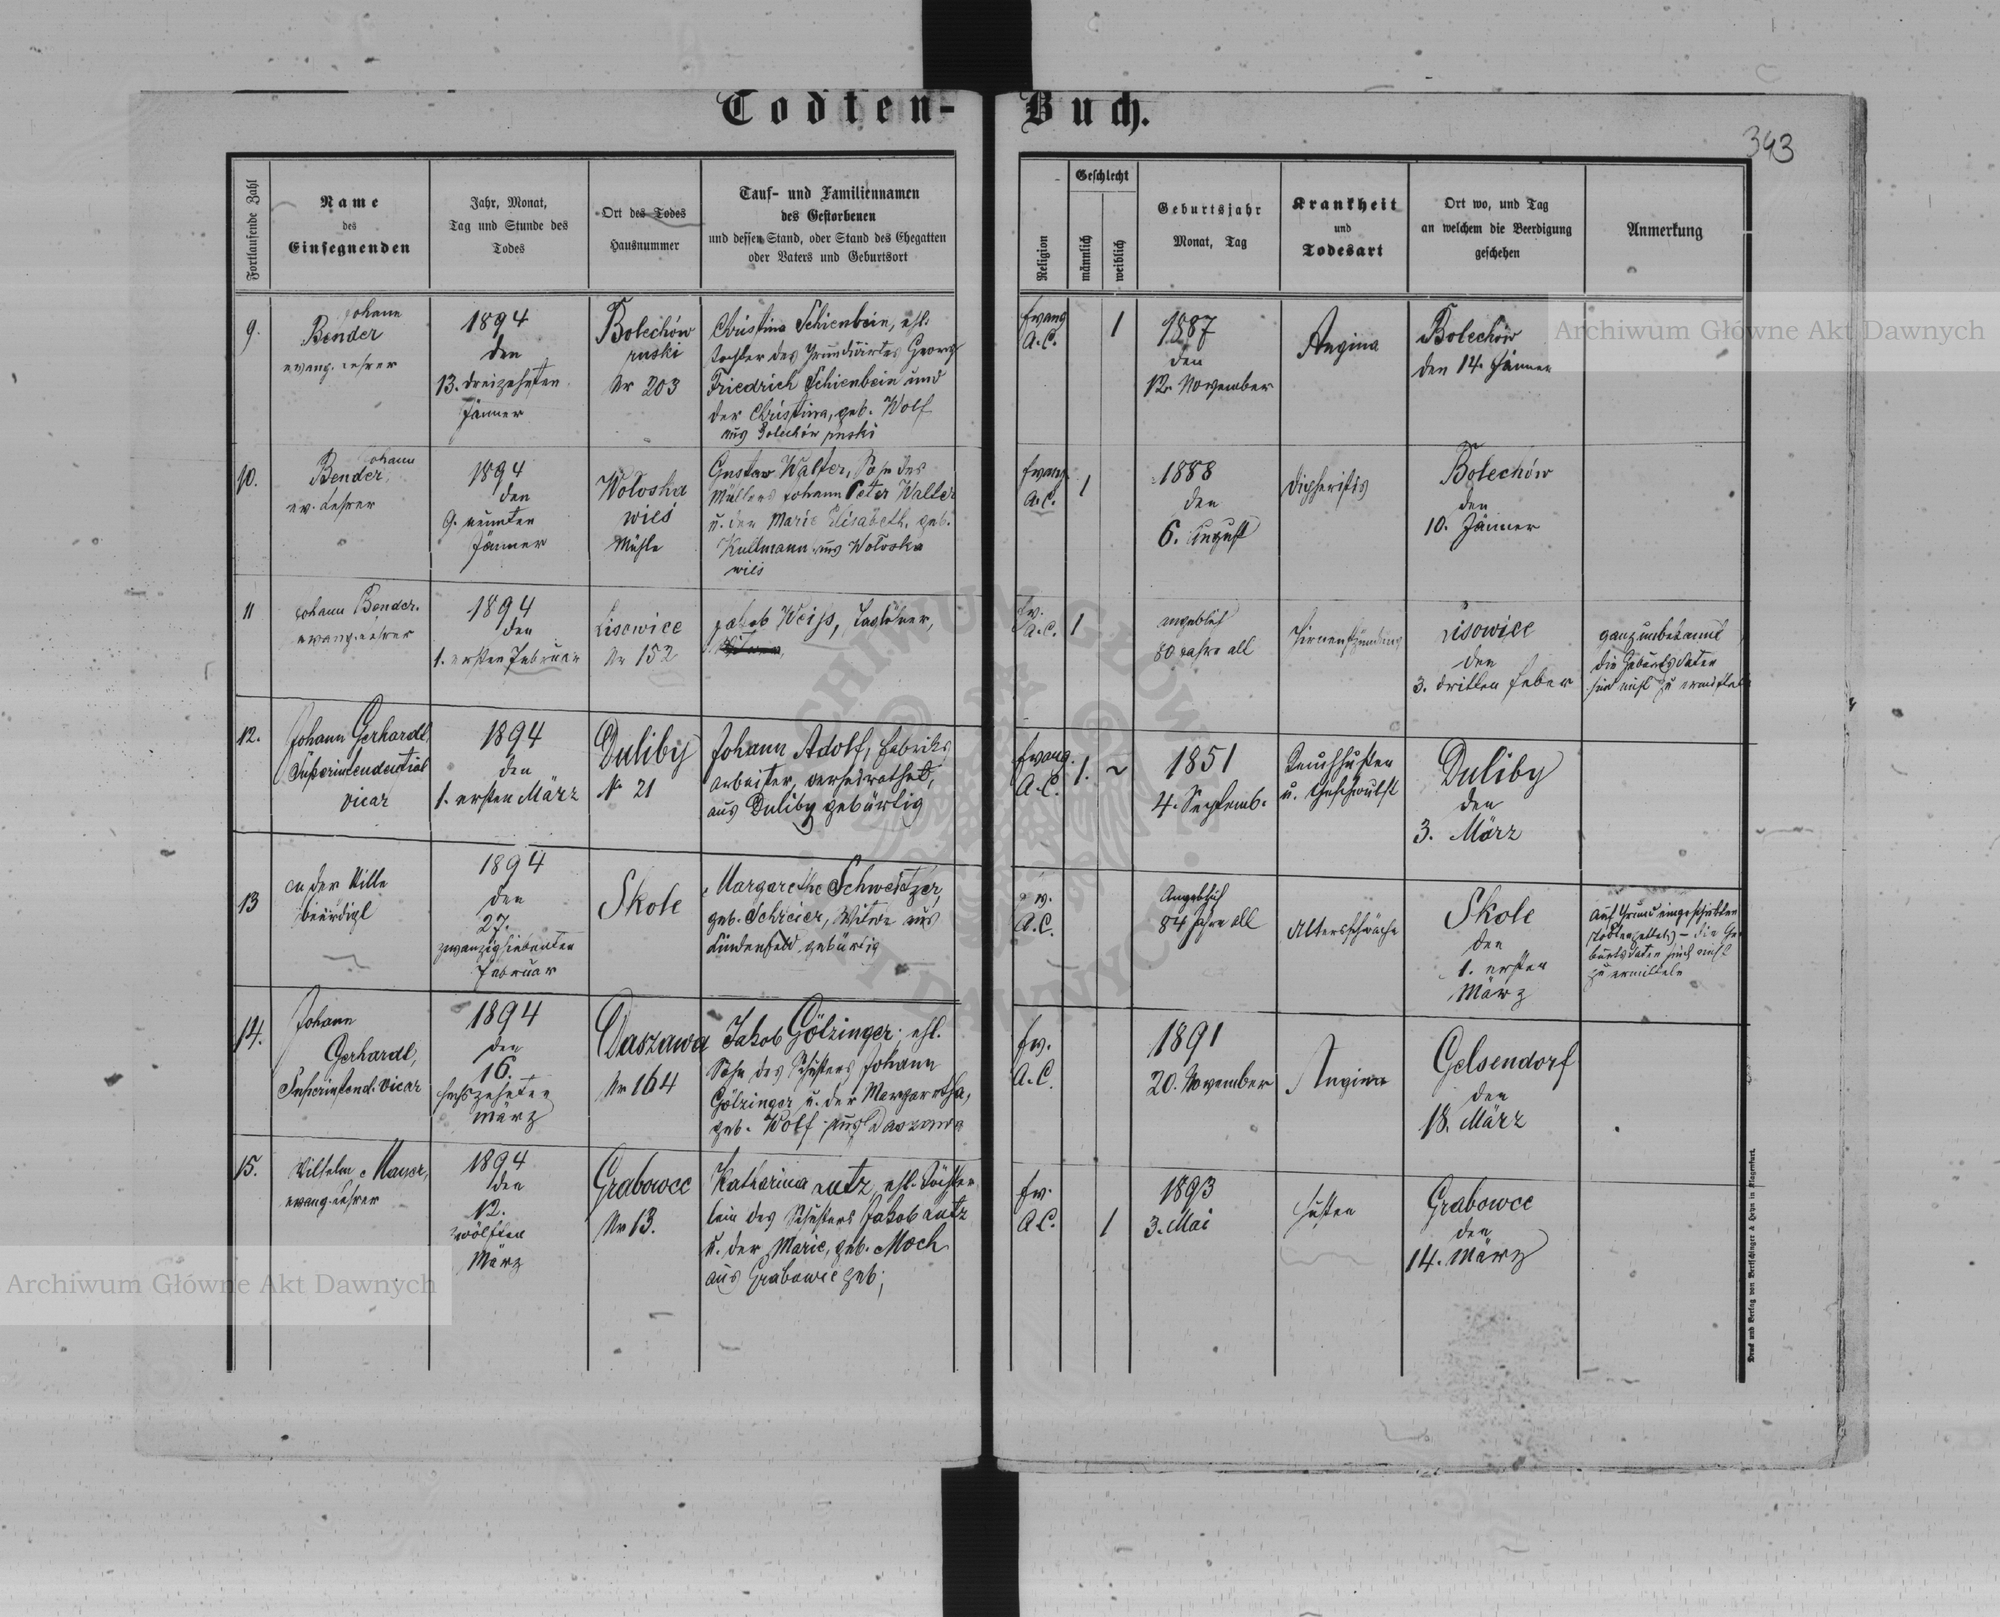 Todten-Buch.
343
Fortlaufende Zahl
Name
des
Einsegnenden
Jahr, Monat,
Tag und Stunde des
Todes
Ort des Todes
Hausnummer
Tauf- und Familiennamen
des Gestorbenen
und dessen Stand, oder Stand des Ehegatten
oder Vaters und Geburtsort
Religion
Geschlecht
männlich
weiblich
Geburtsjahr
Monat, Tag
Krankheit
und
Todesart
Ort wo, und Tag
an welchem die Beerdigung
geschehen
Anmerkung
9.
Johann
Bender
evang. Lehrer
1894
den
13. dreizehnten
Jänner
Bolechów
ruski
Nr 203
Christina Schienbein, ehl.
Tochter des Grundwirtes Georg
Friedrich Schienbein und
der Christina, geb. Wolf
aus Bolechów ruski
Evang
A.C.
1
1887
den
12. November
Angina
Bolechów
den 14. Jänner
10.
Johann
Bender,
ev. Lehrer
1894
den
9. neunten
Jänner
Wołoska
wieś
Mühle
Gustav Walter, Sohn des
Müllers Johann Peter Walter
u. der Marie Elisabeth, geb.
Kullmann aus Wołoska
wieś
Evang
A.C.
1
1888
den
6. August
Dipheritis
Bolechów
den
10. Jänner
11
Johann Bender.
evang. Lehrer
1894
den
1. ersten Februar
Lisowice
Nr 152
Jakob Weiss, Taglöhner,
Ev.
A.C.
1
angeblich
80 Jahre alt
Hirnentzündung
Lisowice
den
3. dritten Feber
ganz unbekannt
die Geburtsdaten
sind nicht zu ermitteln
12.
Johann Gerhardt,
Superintendential
vicar
1894
den
1. ersten März
Duliby
No 21
Johann Adolf, Fabriks
arbeiter, verheirathet,
aus Duliby gebürtig
Evang.
A.C.
1.
1851
4. Septemb.
Keuchhusten
u. Geschwulst
Duliby
den
3. März
13
In der Stille
beerdigt
1894
den
27.
zwanzigsiebenten
Februar
Skole
Margarethe Schweitzer,
geb. Schreier, Witwe aus
Lindenfeld gebürtig
Ev.
A.C.
Angeblich
84 Jahre alt
Altersschwäche
Skole
den
1. ersten
März
Auf Grund eingeschickten
Todtenzettels – die Ge-
burtsdaten sind nicht
zu ermitteln
14.
Johann
Gerhardt,
Superintend. vicar
1894
den
16.
sechszehnten
März
Daszawa
Nr 164
Jakob Götzinger, ehl.
Sohn des Schusters Johann
Götzinger u. der Margaretha,
geb. Wolf aus Daszawa
Ev.
A.C.
1891
20. November
Angina
Gelsendorf
den
18. März
15.
Wilhelm Mauer,
evang. Lehrer
1894
den
12.
zwölften
März
Grabowce
Nr 13.
Katharina Lutz, ehl. Töchter-
lein des Schusters Jakob Lutz
u. der Marie, geb. Moch
aus Grabowce geb;
Ev.
A.C.
1
1893
3. Mai
Husten
Grabowce
den
14. März
Druck und Verlag von Bertschinger & Heyn in Klagenfurt.
Archiwum Główne Akt Dawnych
Archiwum Główne Akt Dawnych
ARCHIWUM GŁÓWNE AKT DAWNYCH